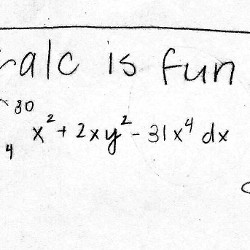 calc is fun
30
x² + 2xy² - 31x⁴ dx
4